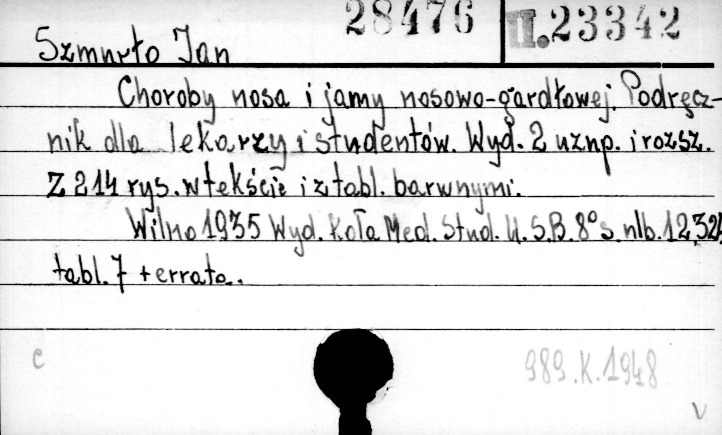 28476 II.23342
Szmurło Jan
Choroby nosa i jamy nosowo-gardłowej. Podręcz-
nik dla lekarzy i studentów. Wyd. 2 uznp. i rozsz.
Z 214 rys. w tekście i z tabl. barwnymi.
Wilno 1935 Wyd. Koła Med. Stud. U.S.B. 8° s. nlb. 12,
tabl. 7 + errata.
c 989.K.1948
v